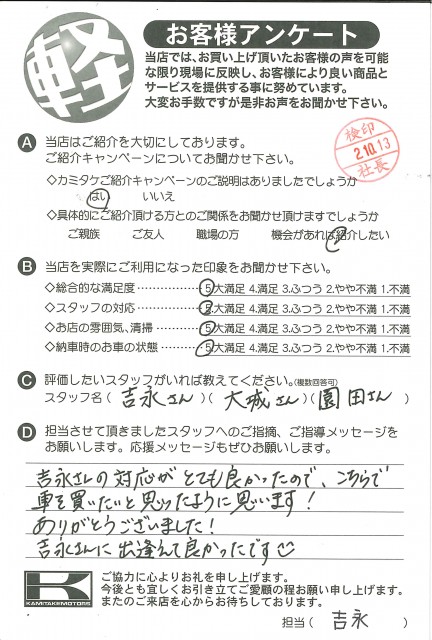 軽
お客様アンケート
当店では、お買い上げ頂いたお客様の声を可能
な限り現場に反映し、お客様により良い商品と
サービスを提供する事に努めています。
大変お手数ですが是非お声をお聞かせ下さい。
検印
2.10.13
社長
A 当店はご紹介を大切にしております。
ご紹介キャンペーンについてお聞かせ下さい。
◇カミタケご紹介キャンペーンのご説明はありましたでしょうか
はい いいえ
◇具体的にご紹介頂ける方とのご関係をお聞かせ頂けますでしょうか
ご親族 ご友人 職場の方 機会があれば紹介したい
B 当店を実際にご利用になった印象をお聞かせ下さい。
◇総合的な満足度‥‥‥‥‥5.大満足 4.満足 3.ふつう 2.やや不満 1.不満
◇スタッフの対応‥‥‥‥‥5.大満足 4.満足 3.ふつう 2.やや不満 1.不満
◇お店の雰囲気、清掃‥‥‥5.大満足 4.満足 3.ふつう 2.やや不満 1.不満
◇納車時のお車の状態‥‥‥5.大満足 4.満足 3.ふつう 2.やや不満 1.不満
C 評価したいスタッフがいれば教えてください。(複数回答可)
スタッフ名(吉永さん)(大城さん)(園田さん)
D 担当させて頂きましたスタッフへのご指摘、ご指導メッセージを
お願いします。応援メッセージもぜひお願いします。
吉永さんの対応がとても良かったので、こちらで
車を買いたいと思ったように思います!
ありがとうございました!
吉永さんに出逢えて良かったです☺
K
KAMITAKEMOTORS
ご協力に心よりお礼を申し上げます。
今後とも宜しくお引き立てご愛顧の程お願い申し上げます。
またのご来店を心からお待ちしております。
担当(吉永)